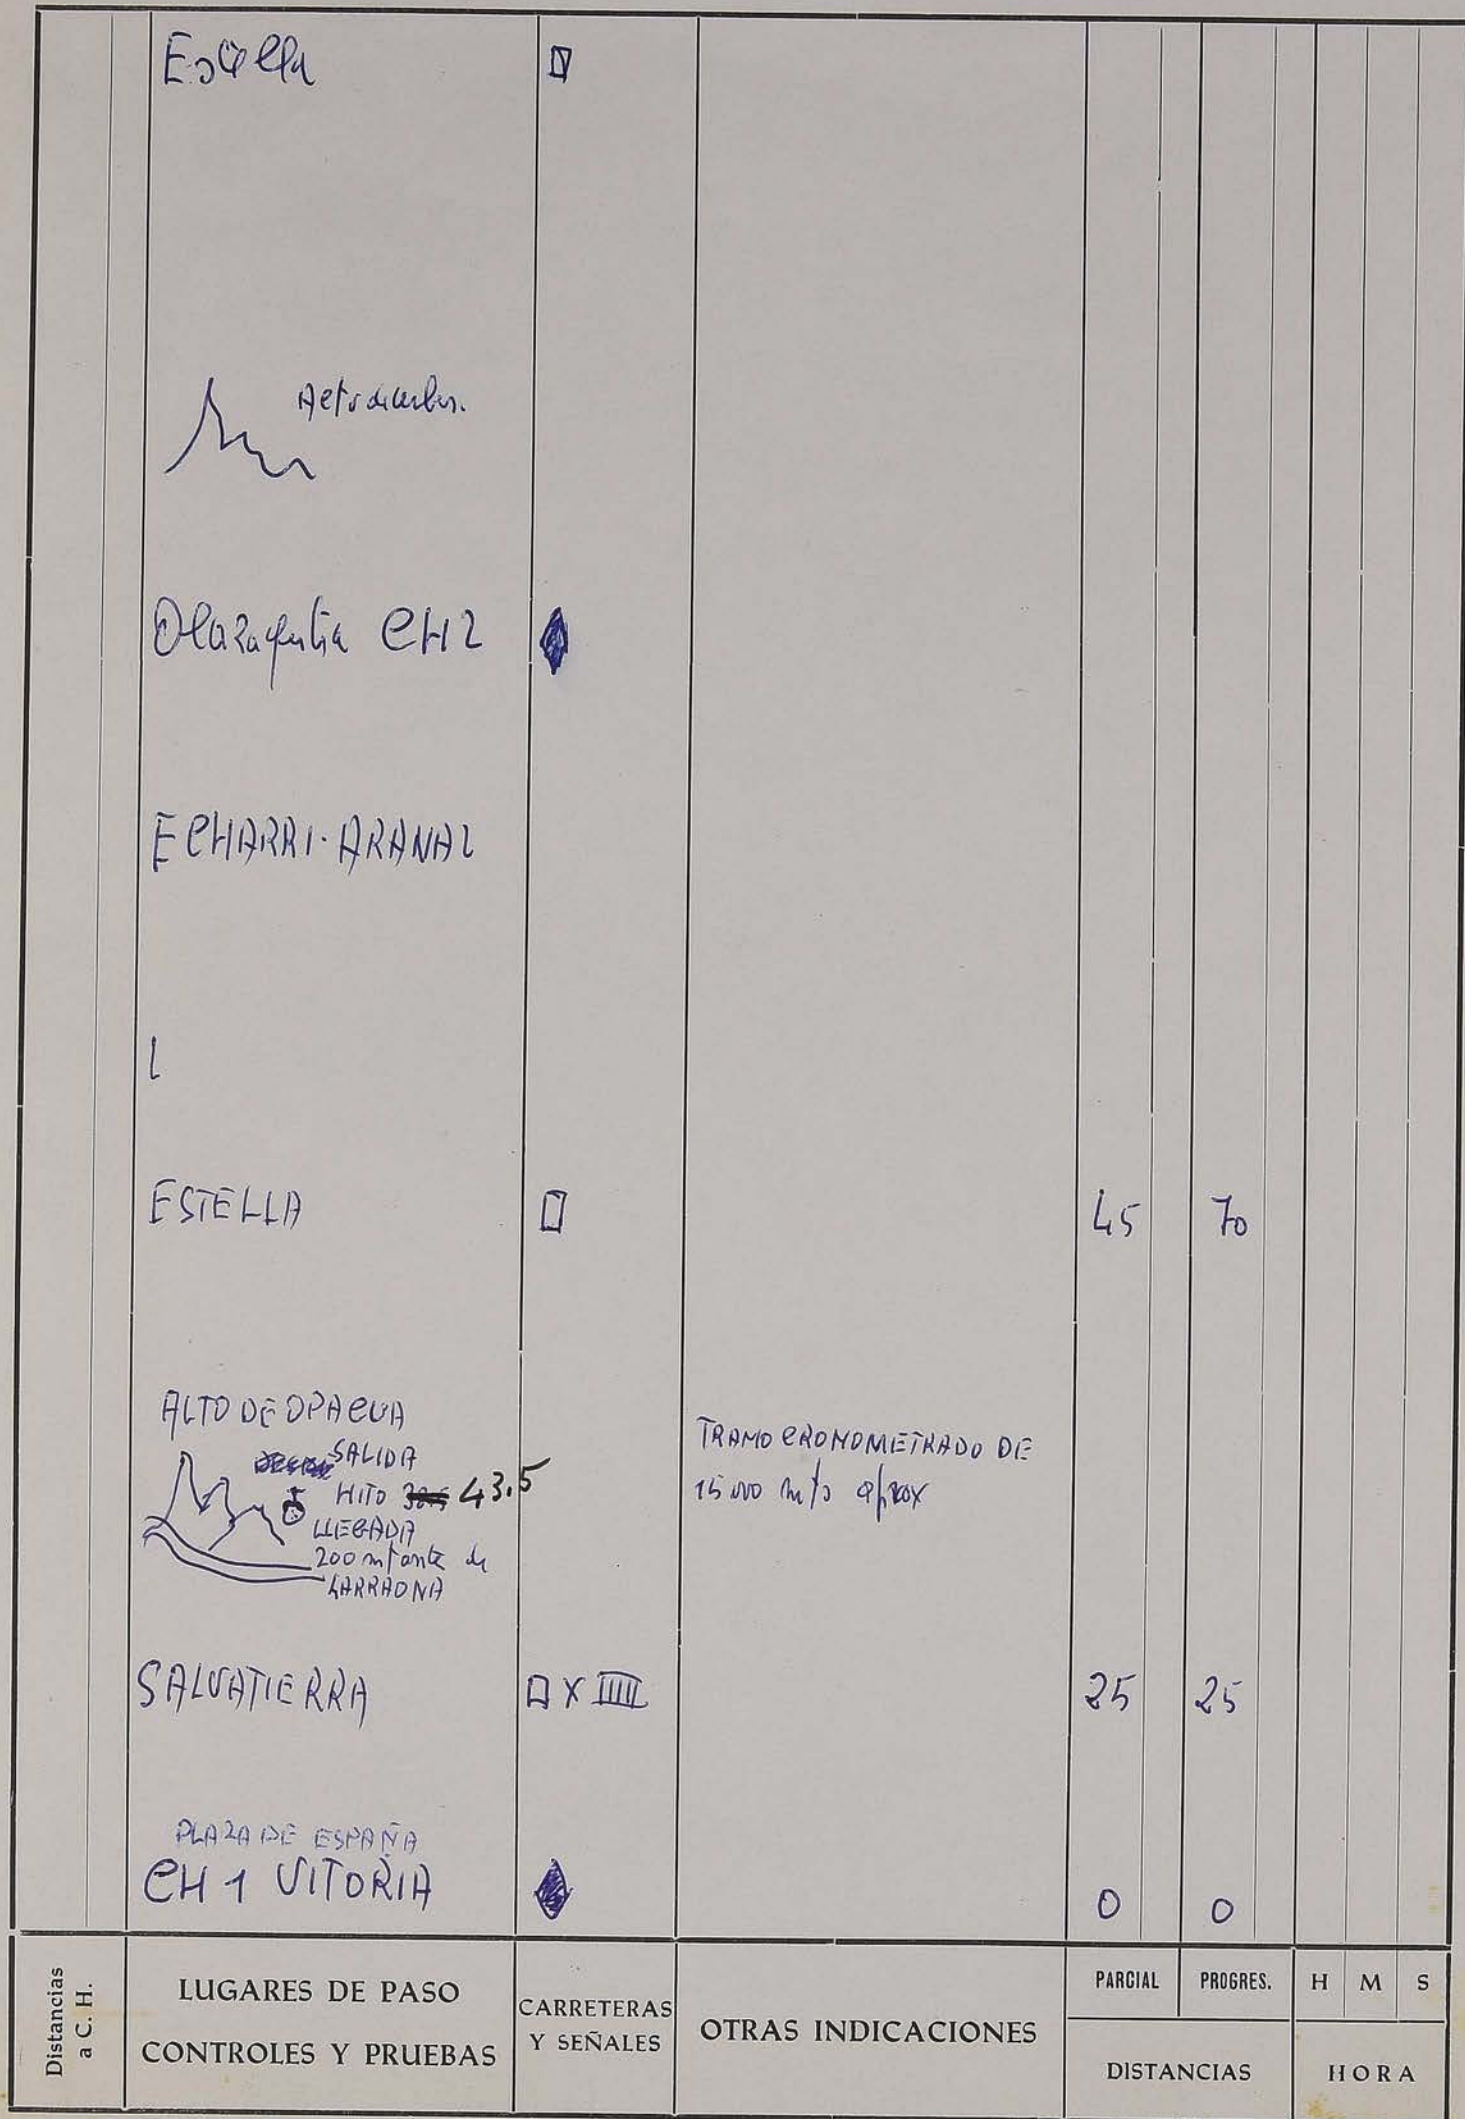 Estella
Olazagutia CH2
ECHARRI-ARANAZ
ESTELLA 45 70
ALTO DE OPACUA
SALIDA
HITO 43.5
LLEGADA
200 mt ante de
LARRAONA
TRAMO CRONOMETRADO DE
15000 mts aprox
SALVATIERRA X 25 25
PLAZA DE ESPAÑA
CH 1 VITORIA 0 0
Distancias
a C. H.
LUGARES DE PASO
CONTROLES Y PRUEBAS
CARRETERAS
Y SEÑALES
OTRAS INDICACIONES
PARCIAL PROGRES.
DISTANCIAS
H M S
HORA